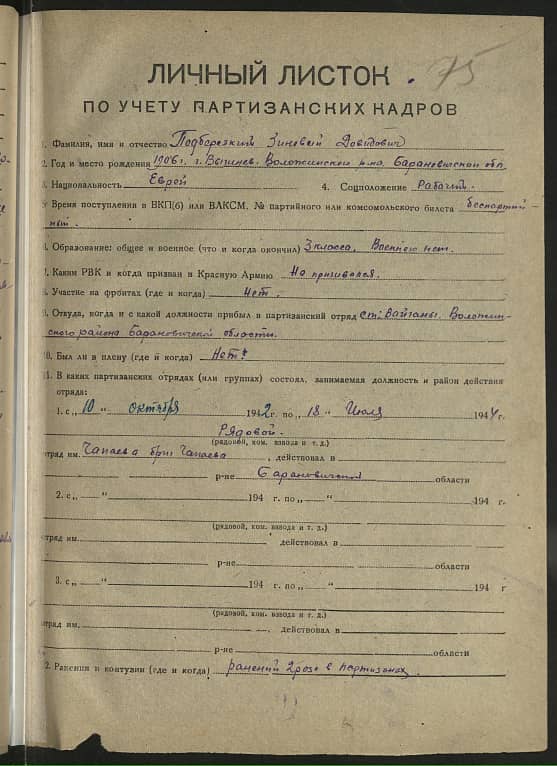 75
ЛИЧНЫЙ ЛИСТОК
ПО УЧЕТУ ПАРТИЗАНСКИХ КАДРОВ
1. Фамилия, имя и отчество Подберезкий Зиновей Давидович
2. Год и место рождения 1906 г. г. Воложинского р-на Барановичской обл
3. Национальность Еврей 4. Соцположение Рабочий.
5. Время поступления в ВКП(б) или ВЛКСМ, № партийного или комсомольского билета беспартий-
ный.
6. Образование: общее и военное (что и когда окончил) 3 класса, Военного нет.
7. Каким РВК и когда призван в Красную Армию Не призивался.
8. Участие на фронтах (где и когда) Нет.
9. Откуда, когда и с какой должности прибыл в партизанский отряд ст. Вайганы, Воложин-
ского района Барановичской области.
10. Был ли в плену (где и когда) Нет
11. В каких партизанских отрядах (или группах) состоял, занимаемая должность и район действия
отряда:
1. с „10 “ октября 1942 г. по „18 “ Июля 1944 г.
Рядовой.
(рядовой, ком. взвода и т. д.)
отряд им. Чапаева бриг Чапаева, действовал в
р-не Барановичской области
2. с „ “ 194 г. по „ “ 194 г.
(рядовой, ком. взвода и т. д.)
отряд им. , действовал в
р-не области
3. с „ “ 194 г. по „ “ 194 г
(рядовой, ком. взвода и т. д.)
отряд им. , действовал в
р-не области
12. Ранения и контузии (где и когда) ранений 2 раза в партизанах